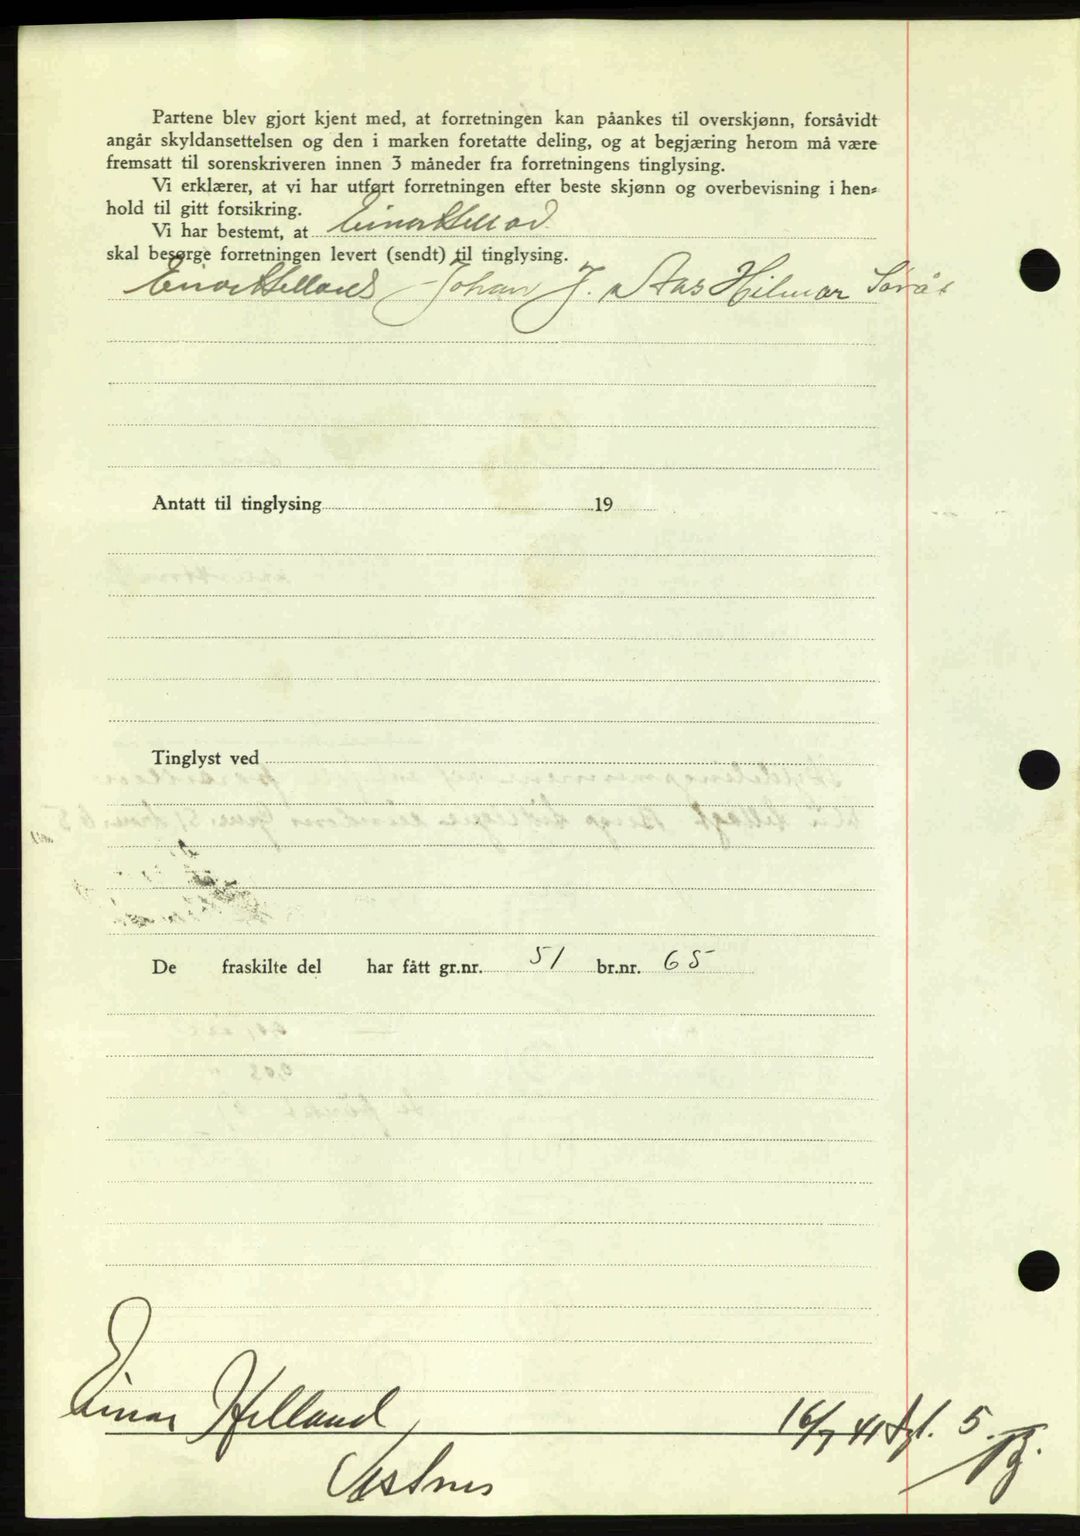 Partene blev gjort kjent med, at forretningen kan påankes til overskjønn, forsåvidt
angår skyldansettelsen og den i marken foretatte deling, og at begjæring herom må være
fremsatt til sorenskriveren innen 3 måneder fra forretningens tinglysing.
Vi erklærer, at vi har utført forretningen efter beste skjønn og overbevisning i hen-
hold til gitt forsikring.
Vi har bestemt, at Einar Helland
skal besørge forretningen levert (sendt) til tinglysing.
Einar Helland Johan J. Aas Hilmar Sørås
Antatt til tinglysing 19
Tinglyst ved
De fraskilte del har fått gr.nr. 51 br.nr. 65
Einar Helland,
Vestnes
16/7 41 5.